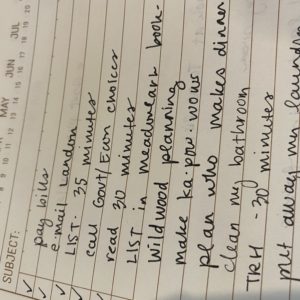 MAY JUN JUL
SUBJECT:
pay bills
e-mail Landon
LIST - 35 minutes
call Govt/Econ choices
read 30 minutes
LIST in meadowlark book-
wildwood planning
make ka-pow-wows
plan who makes dinner
clean my bathroom
TRH - 30 minutes
put away my laundry